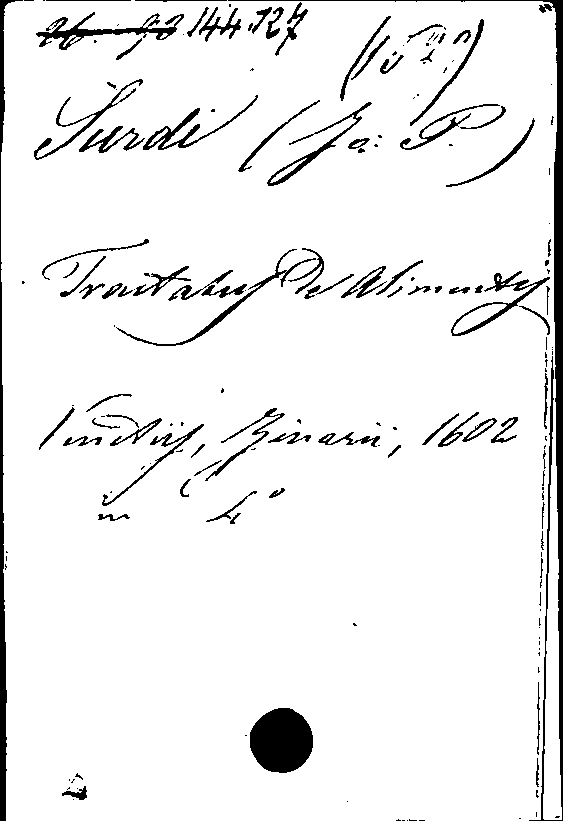 144.127
Surdi (Jo: P.)
Tractatus De Alimentis
Venetiis, Zenarii, 1602
in 4°